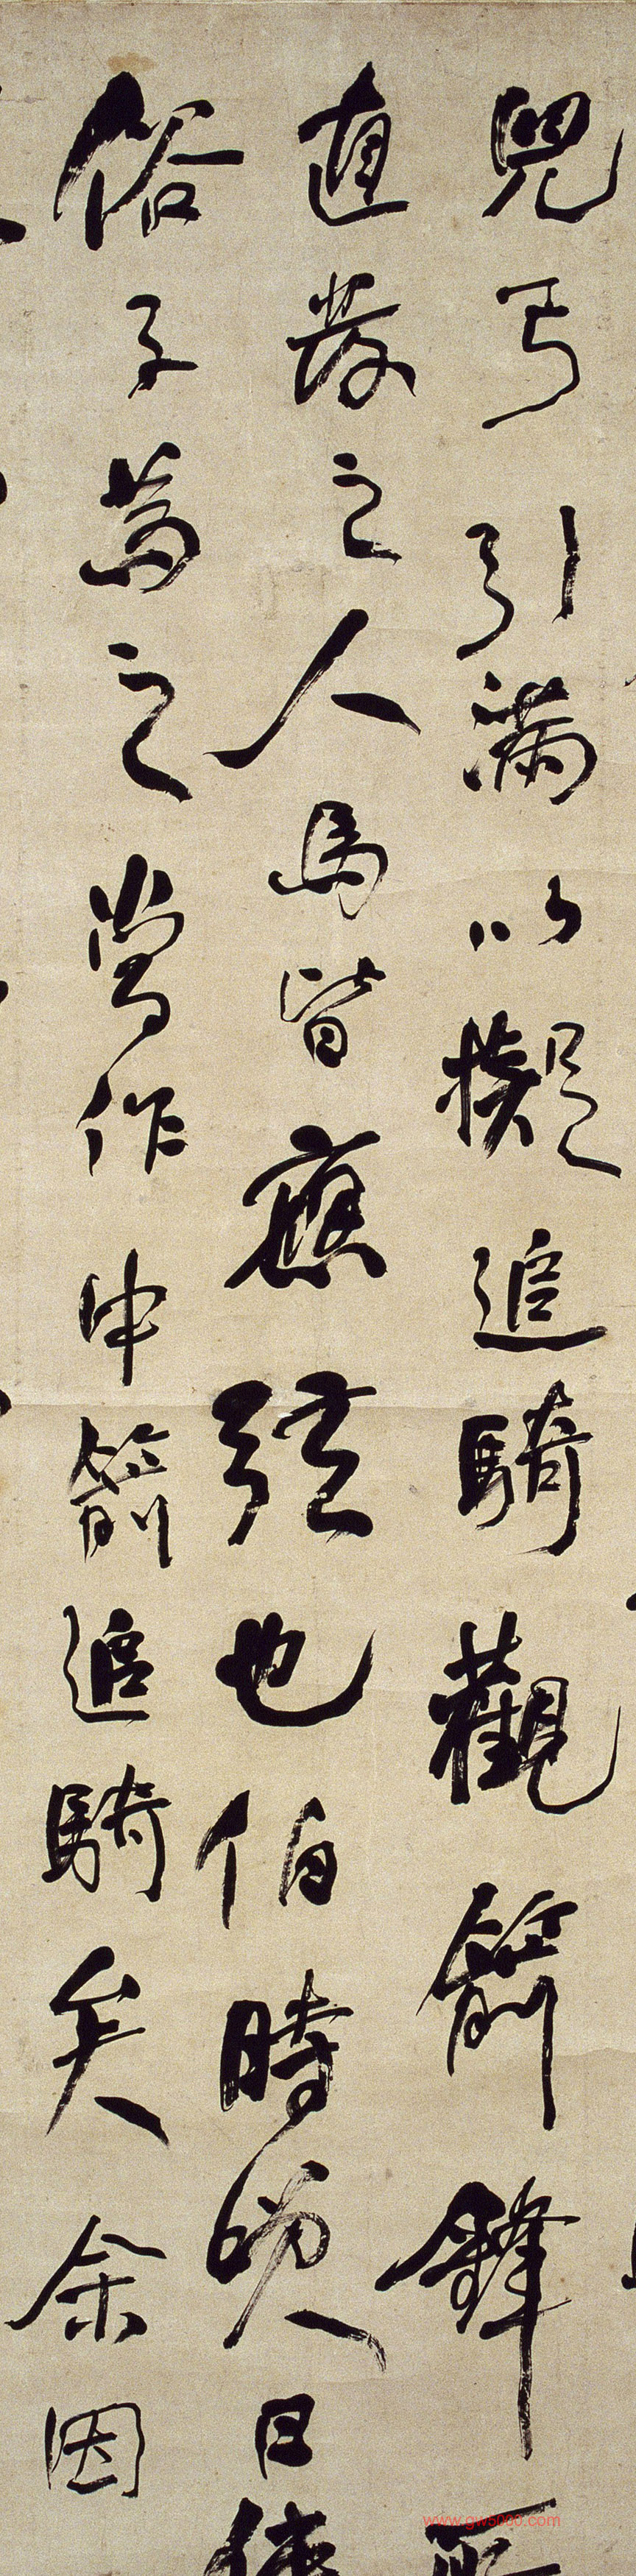 兒弓引滿以擬追騎觀箭鋒所
直發之人馬皆應弦也伯時咲曰使
俗子為之當作中箭追騎矣余因
www.gw5000.com